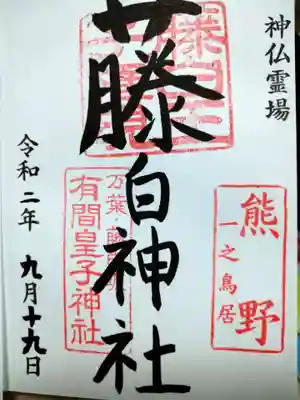 神仏霊場
藤白神社
熊野
一之鳥居
有間皇子神社
令和二年 九月十九日